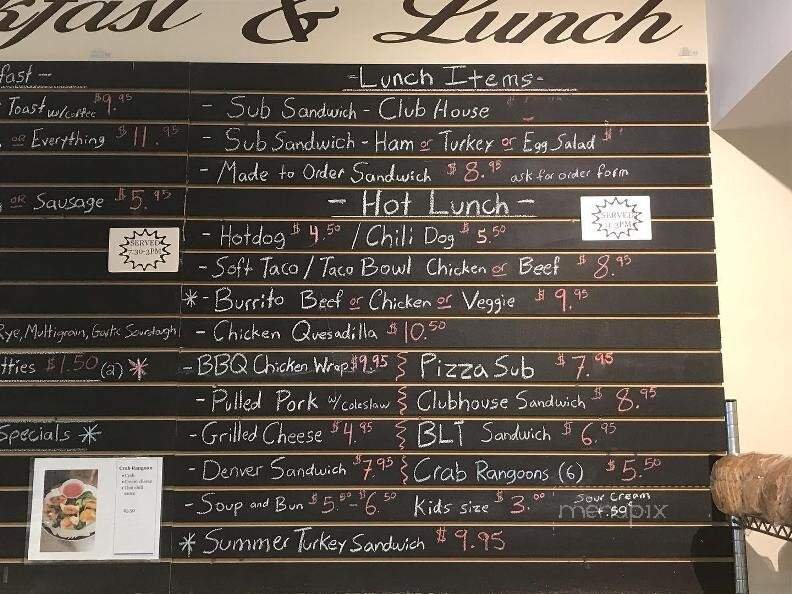 kfast & Lunch
fast -
Toast w/coffee $9.95
or Everything $11.95
or Sausage $5.95
SERVED
7:30-2PM
Rye, Multigrain, Garlic Sourdough
tties $1.50 (2) *
Specials *
Crab Rangoon
- Lunch Items -
- Sub Sandwich - Club House
- Sub Sandwich - Ham or Turkey or Egg Salad $
- Made to Order Sandwich $8.95 ask for order form
- Hot Lunch -
SERVED
- Hotdog $4.50 / Chili Dog $5.50
- Soft Taco / Taco Bowl Chicken or Beef $8.95
* - Burrito Beef or Chicken or Veggie $9.95
- Chicken Quesadilla $10.50
- BBQ Chicken Wrap $9.95 Pizza Sub $7.95
- Pulled Pork w/coleslaw Clubhouse Sandwich $8.95
- Grilled Cheese $4.95 BLT Sandwich $6.95
- Denver Sandwich $7.95 Crab Rangoons (6) $5.50
- Soup and Bun $5.50 - $6.50 Kids size $3.00 Sour Cream
.50
menupix
* Summer Turkey Sandwich $9.95